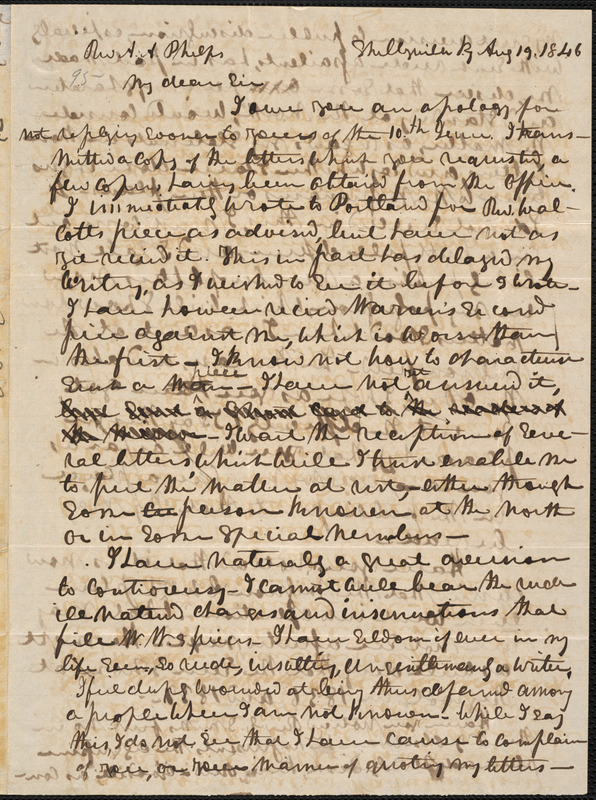 Rev A. A. Phelps Shelbyville Ky Aug 19. 1846
95
My dear Sir
I owe you an apology for
not replying sooner to yours of the 10th June. I trans-
mitted a copy of the letters which you requested, a
few copies having been obtained from the office.
I immediately wrote to Portland for Rev. Wal-
cotts piece as advised, but have not as
yet recied it. This in part has delayed my
writing, as I wished to see it before I wrote-
I have however recied Warren's second
piece against me, which is worse than
the first - I know not how to characterise
such a piece - I have not yet answered it,
- I wait the reception of seve-
ral letters which will I trust enable me
to put the matter at rest, - either through
some person known at the north
or in some special numbers -
I have naturally a great aversion
to controversy - I cannot well bear the rude
ill natured charges and insinuations that
fill W. W. s pieces. I have seldom if ever in my
life seen, so rude, insulting, ungentlemanly a writer,
I feel deeply wounded at being thus defamed among
a people where I am not known - while I say
this, I do not see that I have cause to complain
of you, or your manner of quoting my letters -